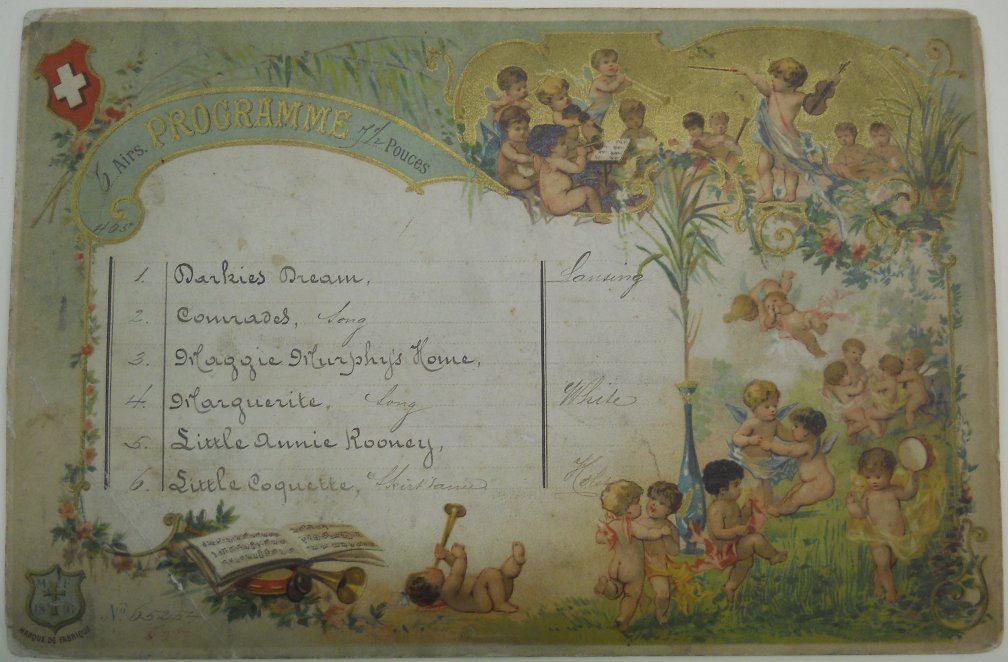 PROGRAMME
6 Airs. 7 1/2 Pouces
465
1. Darkies Dream, Lansing
2. Comrades, Song
3. Maggie Murphy's Home,
4. Marguerite, Song White
5. Little Annie Rooney,
6. Little Coquette, Skirt Dance
No 65254
MARQUE DE FABRIQUE